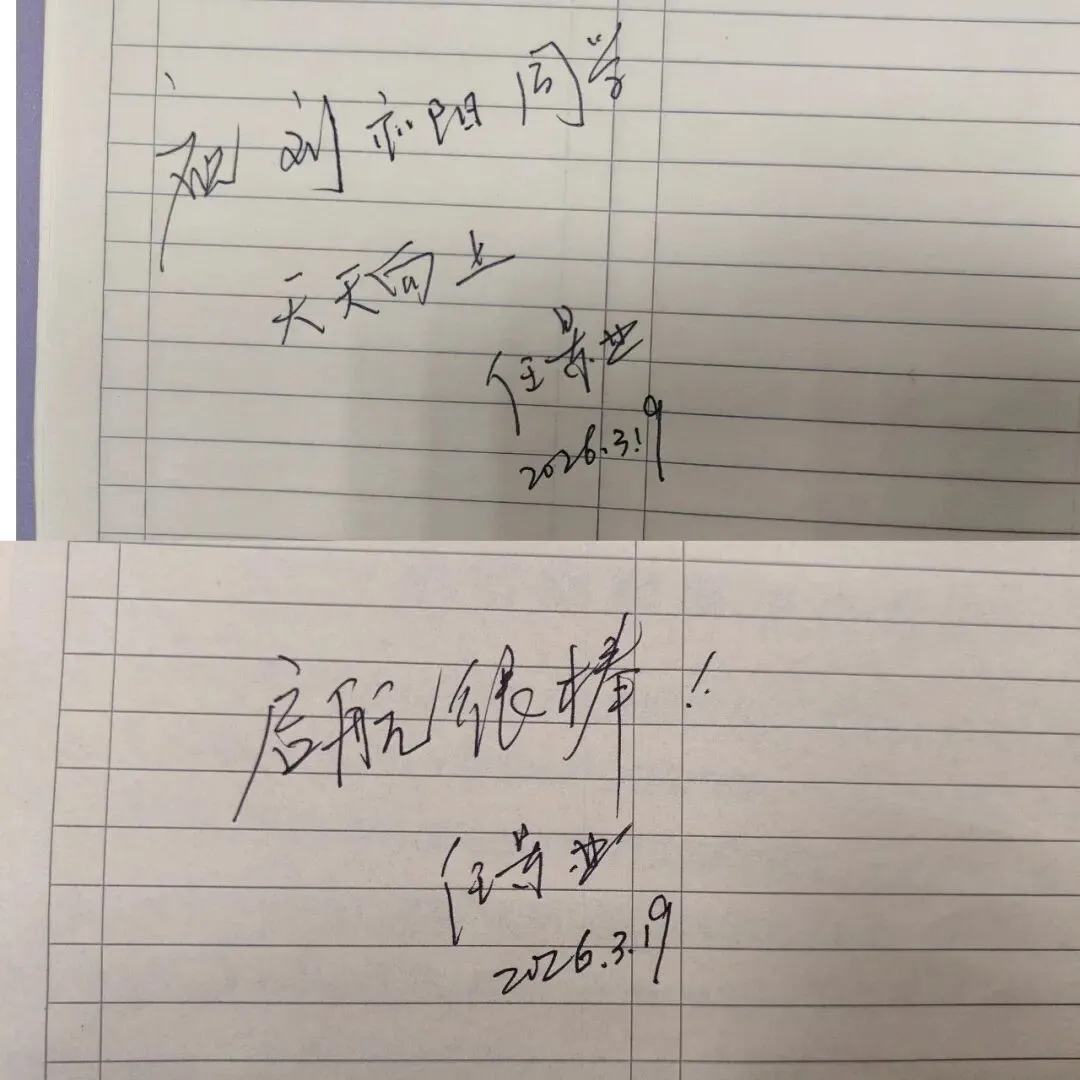 祝刘亦阳同学
天天向上
任
2026.3.19
启航很棒!
任
2026.3.19